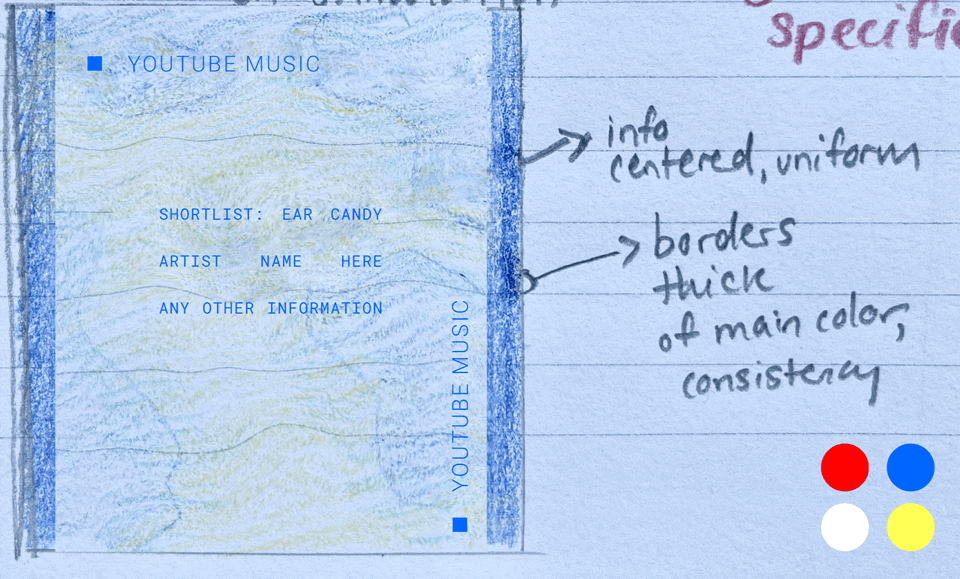 specific
YOUTUBE MUSIC
info
centered, uniform
SHORTLIST: EAR CANDY
ARTIST NAME HERE
ANY OTHER INFORMATION
borders
thick
of main color,
consistency
YOUTUBE MUSIC